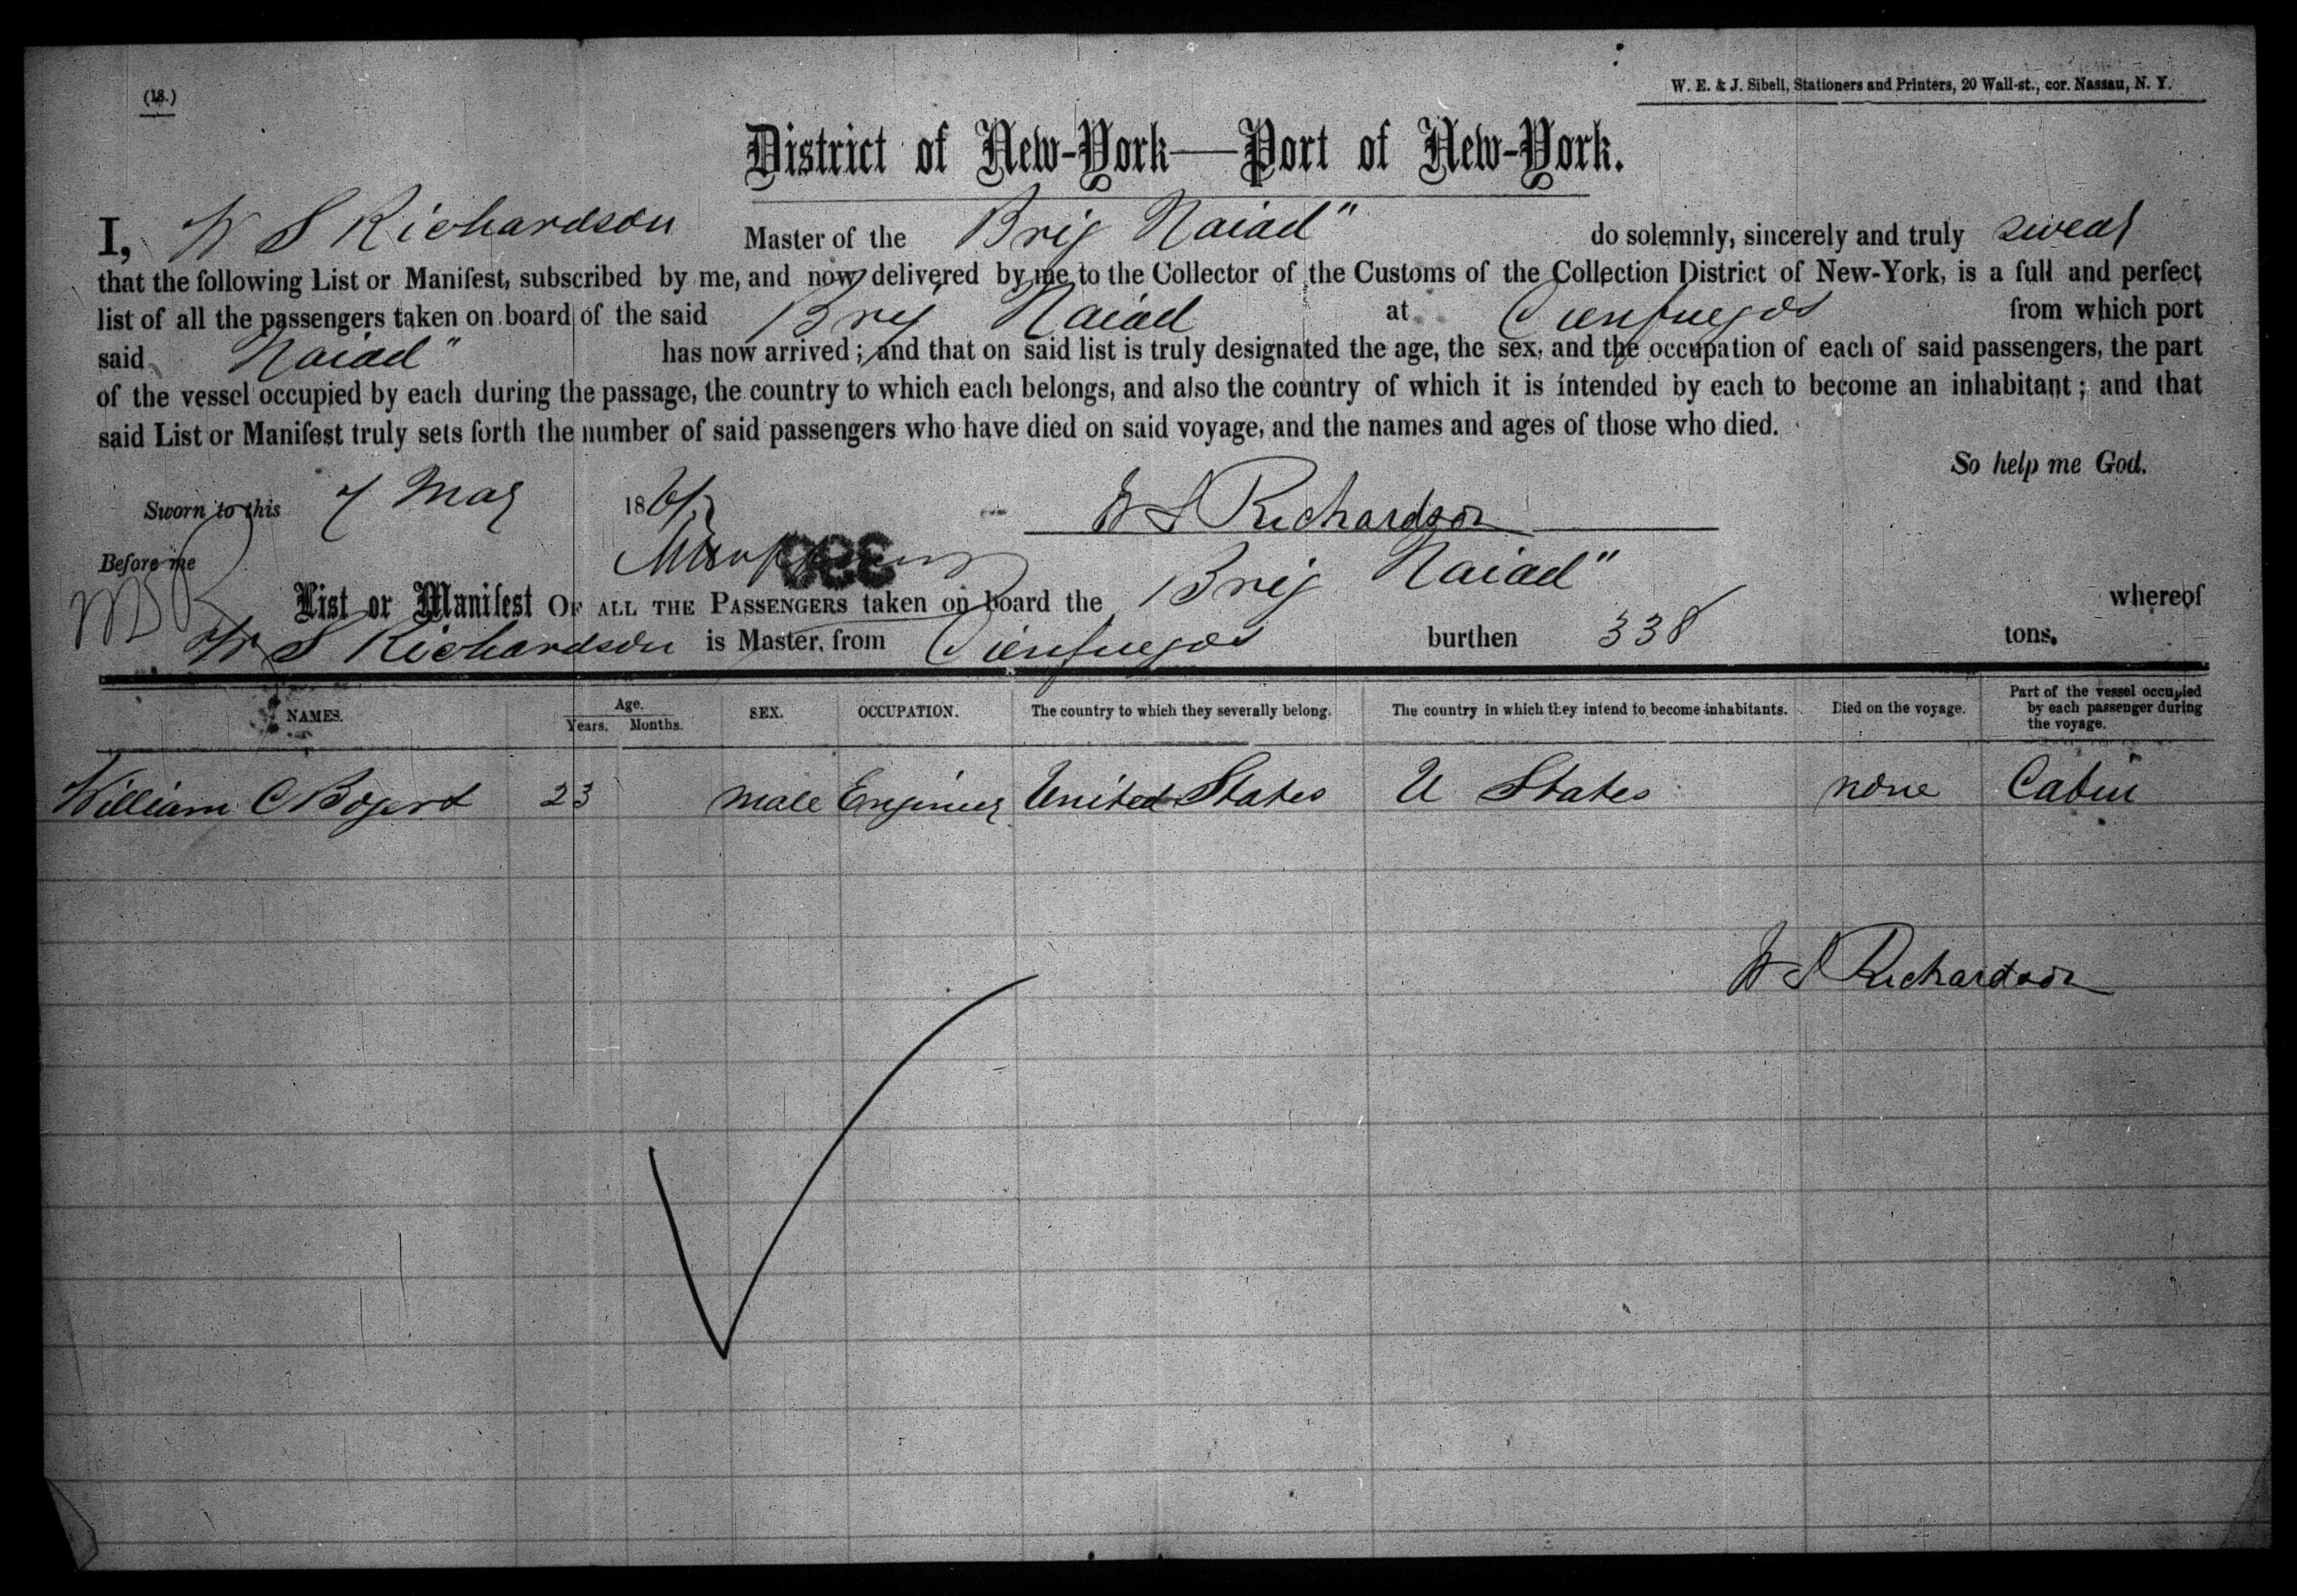 (18.)
W. E. & J. Sibell, Stationers and Printers, 20 Wall-st., cor. Nassau, N. Y.
District of New-York—Port of New-York.
I, W S Richardson Master of the Brig Naiad" do solemnly, sincerely and truly swear
that the following List or Manifest, subscribed by me, and now delivered by me to the Collector of the Customs of the Collection District of New-York, is a full and perfect
list of all the passengers taken on board of the said Brig Naiad at Cienfuegos from which port
said Naiad" has now arrived; and that on said list is truly designated the age, the sex, and the occupation of each of said passengers, the part
of the vessel occupied by each during the passage, the country to which each belongs, and also the country of which it is intended by each to become an inhabitant; and that
said List or Manifest truly sets forth the number of said passengers who have died on said voyage, and the names and ages of those who died.
So help me God.
Sworn to this 7 May 186 W S Richardson
Before me
List or Manifest OF ALL THE PASSENGERS taken on board the Brig Naiad" whereof
W S Richardson is Master, from Cienfuegos burthen 338 tons.
NAMES. Age. Years. Months. SEX. OCCUPATION. The country to which they severally belong. The country in which they intend to become inhabitants. Died on the voyage. Part of the vessel occupied by each passenger during the voyage.
William C Bogert 23 male Engineer United States U States none Cabin
W S Richardson